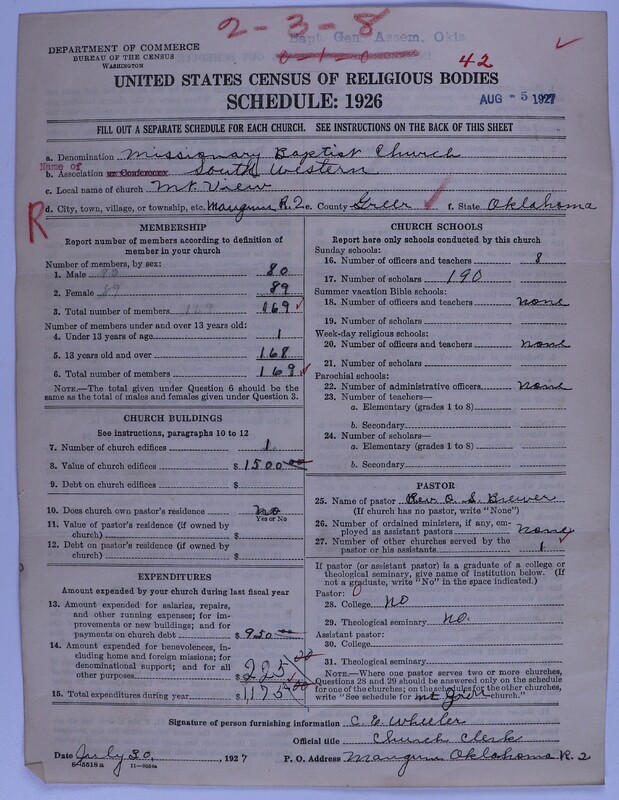 2-3-8
Bapt. Gen. Assem. Okla
0-1-0
DEPARTMENT OF COMMERCE
BUREAU OF THE CENSUS
WASHINGTON
42
UNITED STATES CENSUS OF RELIGIOUS BODIES
SCHEDULE: 1926
AUG - 5 1927
FILL OUT A SEPARATE SCHEDULE FOR EACH CHURCH. SEE INSTRUCTIONS ON THE BACK OF THIS SHEET
a. Denomination Missionary Baptist Church
Name of
b. Association or Conference South Western
c. Local name of church Mt. View
d. City, town, village, or township, etc. Mangum R. 2 e. County Greer f. State Oklahoma
R
MEMBERSHIP
Report number of members according to definition of
member in your church
Number of members, by sex:
1. Male 80 80
2. Female 89 89
3. Total number of members 169 169
Number of members under and over 13 years old:
4. Under 13 years of age 1
5. 13 years old and over 168
6. Total number of members 169
NOTE.—The total given under Question 6 should be the
same as the total of males and females given under Question 3.
CHURCH BUILDINGS
See instructions, paragraphs 10 to 12
7. Number of church edifices 1
8. Value of church edifices $ 1500 00
9. Debt on church edifices $
10. Does church own pastor's residence no
Yes or No
11. Value of pastor's residence (if owned by
church) $
12. Debt on pastor's residence (if owned by
church) $
EXPENDITURES
Amount expended by your church during last fiscal year
13. Amount expended for salaries, repairs,
and other running expenses; for im-
provements or new buildings; and for
payments on church debt $ 950
14. Amount expended for benevolences, in-
cluding home and foreign missions; for
denominational support; and for all
other purposes $ 225 00
15. Total expenditures during year $ 1175 00
CHURCH SCHOOLS
Report here only schools conducted by this church
Sunday schools:
16. Number of officers and teachers 8
17. Number of scholars 190
Summer vacation Bible schools:
18. Number of officers and teachers none
19. Number of scholars
Week-day religious schools:
20. Number of officers and teachers none
21. Number of scholars
Parochial schools:
22. Number of administrative officers none
23. Number of teachers—
a. Elementary (grades 1 to 8)
b. Secondary
24. Number of scholars—
a. Elementary (grades 1 to 8)
b. Secondary
PASTOR
25. Name of pastor Rev. O. S. Brewer
(If church has no pastor, write "None")
26. Number of ordained ministers, if any, em-
ployed as assistant pastors none
27. Number of other churches served by the
pastor or his assistants 1
If pastor (or assistant pastor) is a graduate of a college or
theological seminary, give name of institution below. (If
not a graduate, write "No" in the space indicated.)
Pastor:
28. College No
29. Theological seminary No.
Assistant pastor:
30. College
31. Theological seminary
NOTE.—Where one pastor serves two or more churches,
Questions 28 and 29 should be answered only on the schedule
for one of the churches; on the schedules for the other churches,
write "See schedule for mt church."
Signature of person furnishing information C. E. Wheeler
Official title Church Clerk
Date July 30, 1927 P. O. Address Mangum Oklahoma R. 2
8-5518a 11-9054a